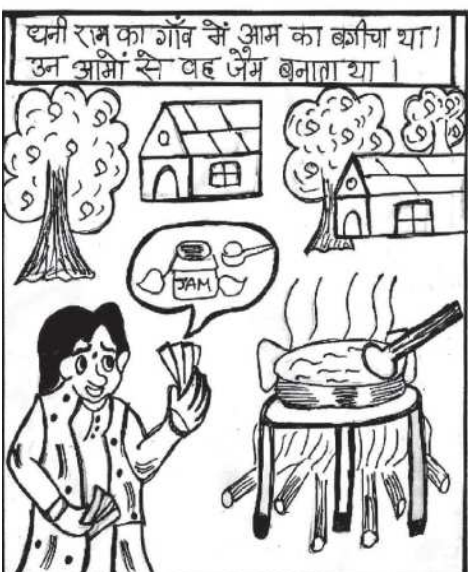 धनी राम का गाँव में आम का बगीचा था।
उन आमों से वह जैम बनाता था।
JAM